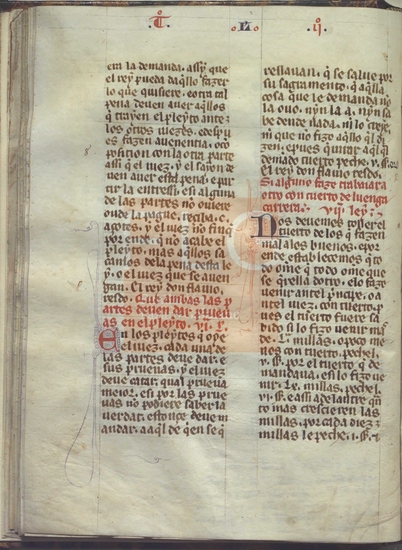 T L̊ IJ
tra la demanda. assy que
el rey pueda daq̃llo fazer
lo que quisiere. o otra tal
pena deuen auer aq̃llos
q̃ trayen el pleyto ante
los otros iuezes. e despu
es fazen auenentia. o co
position con la otra parte
assi q̃ el iuez. y el sayon de
uen auer esta pena. e par
tir la entressi. e si alguna
de las partes no ouiere
onde la pague. reciba. c.
açotes. y el iuez no finq̃
por ende. q̃ no acabe el
pleyto. mas aq̃llos sa
quenlos de la pena desta le
y. o el iuez que se auen
gan. El rey don flauio
resdo. Que ambas las p
artes deuen dar prueu
as en el pleyto. vi. l.
En los pleytos q̃ oye
el iuez. cada una de
las partes deue dar. e
sus prueuas. y el iuez
deue catar. qual prueua
meior. e si por las prue
uas no pudiere saber la
uerdat. estonçe deue m
andar. a aq̃l de q̃en se q̃
rellauan. q̃ se salue por
su sacramento. q̃ aq̃lla
cosa que le demanda no
la ouo. nyn la a. nyn sa
be dende nada. ni lo creye.
ni que no fizo aq̃llo q̃l di
zen. e pues
demando tuerto peche. v. ss.
El rey don flauio resdo.
Si alguno faze
otro con tuerto de luenga
carrera. vij. ley.
Nos deuemos toller el
tuerto de los q̃ fazen
mal a los buenos. e por
ende. establecemos q̃ to
do ome q̃ todo ome que
se q̃rella dotro. e lo faze
uenir ante el prinçipe. o a
nte el iuez. con tuerto. p
ues el tuerto fuere sa
bido si lo fizo uenir mas
de. L. millas. o poco me
nos con tuerto. peche l.
v. ss. por el tuerto q̃ de
mandaua. e si lo fizo ue
nir. Lx. millas. peche l.
vi. ss. e assi adelantre qũ
to mas crescieren las
millas. por cada diez
millas le peche. i. ss.